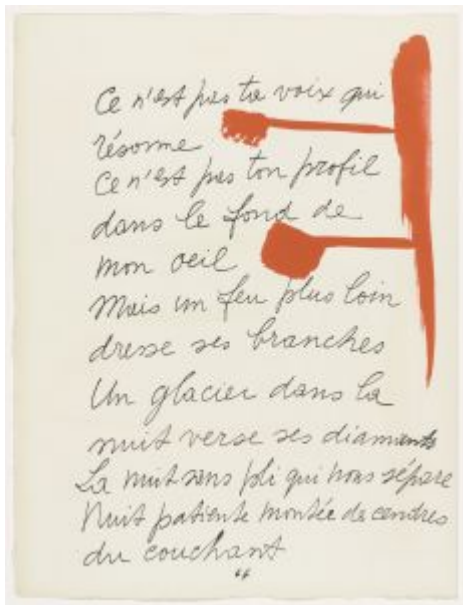 Ce n'est pas ta voix qui
résonne
Ce n'est pas ton profil
dans le fond de
mon oeil
Mais un feu plus loin
dresse ses branches
Un glacier dans la
nuit verse ses diamants
La nuit sans pli qui nous sépare
Nuit patiente montée de cendres
du couchant
64